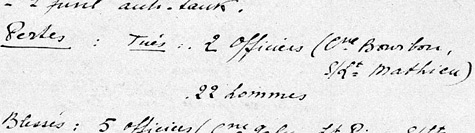 - 2 fusil anti-tank.
Pertes : Tués : 2 officiers (Cne Bourbon,
S/Lt Mathieu)
22 hommes
Blessés : 5 officiers (Cne